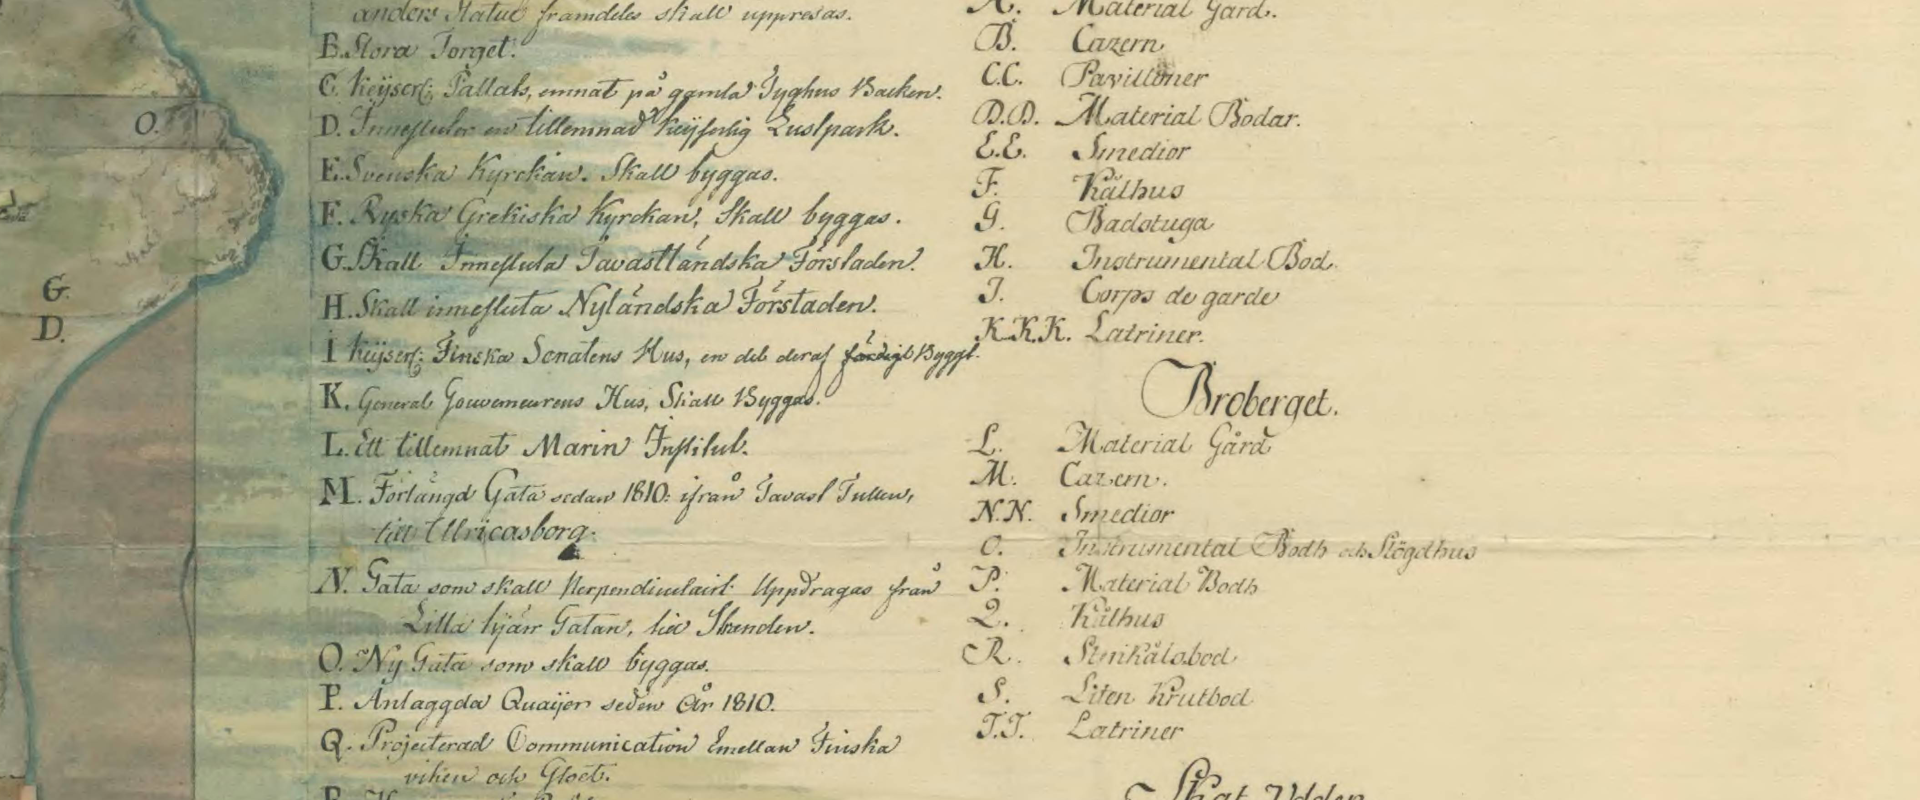 anders Statue framdeles skall uppresas.
B. Stora Torget.
C. Keÿserl: Pallats, ernnat på gamla Tyghus Backen.
D. Innefluter en tillemnad Keÿserlig Lustpark.
E. Svenska Kyrckan. Skall byggas.
F. Ryska Grekiska Kyrckan, Skall byggas.
G. Skall Innesluta Tavastländska Förstaden.
H. Skall innesluta Nyländska Förstaden.
I Keÿserl: Finska Senatens Hus, en del deraf färdigt Byggt.
K. General Gouverneurens Hus, Skall Byggas.
L. Ett tillemnat Marin Institut.
M. Förlängd Gata sedan 1810: ifrån Tavast Tullen,
till Ulricasborg.
N. Gata som skall Perpendiculairt Uppdragas från
Lilla Gatan, till Stranden.
O. Ny Gata som skall byggas.
P. Anlaggda Quaijer seden År 1810.
Q. Projecterad Communication Emellan Finska
viken och Gloet.
R.
O.
G.
D.
A. Material Gård.
B. Cazern
C.C. Pavilloner
D.D. Material Bodar.
E.E. Smedior
F. Kålhus
G. Badstuga
H. Instrumental Bod.
I. Corps de garde
K.K.K. Latriner.
Broberget.
L. Material Gård
M. Cazern.
N.N. Smedior
O. Instrumental Bodh och Slögdhus
P. Material Bodh
Q. Kålhus
R. Stenkålsbod
S. Liten Krutbod
T.T. Latriner
Skat Udden